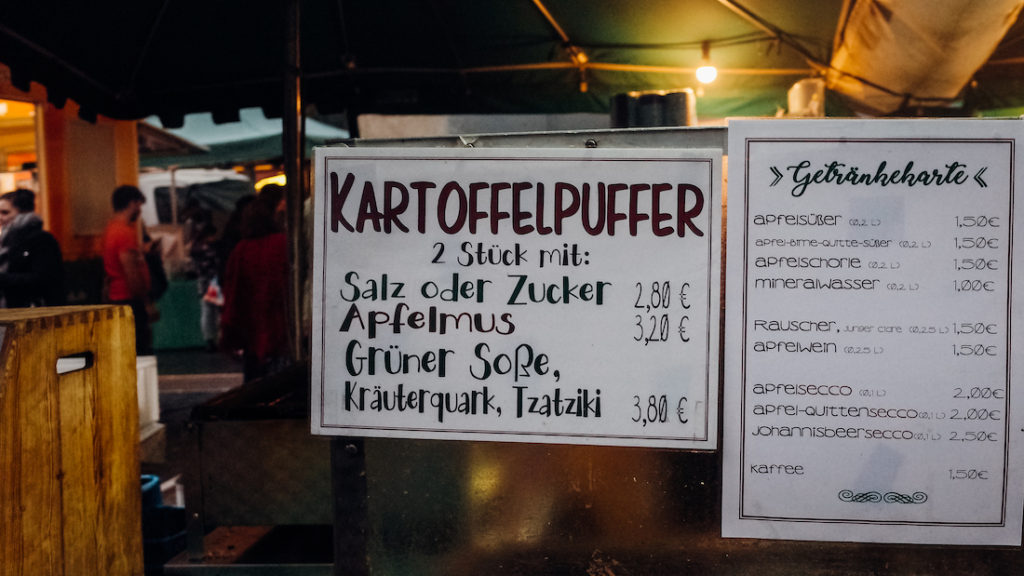 KARTOFFELPUFFER
2 Stück mit:
Salz oder Zucker 2,80 €
Apfelmus 3,20 €
Grüner Soße,
Kräuterquark, Tzatziki 3,80 €
» Getränkekarte «
apfelsüßer (0,2 L) 1,50€
apfel-birne-quitte-süßer (0,2 L) 1,50€
apfelschorle (0,2 L) 1,50€
mineralwasser (0,2 L) 1,00€
Rauscher, junger clare (0,25 L) 1,50€
apfelwein (0,25 L) 1,50€
apfelsecco (0,1 L) 2,00€
apfel-quittensecco (0,1 L) 2,00€
johannisbeersecco (0,1 L) 2,50€
kaffee 1,50€